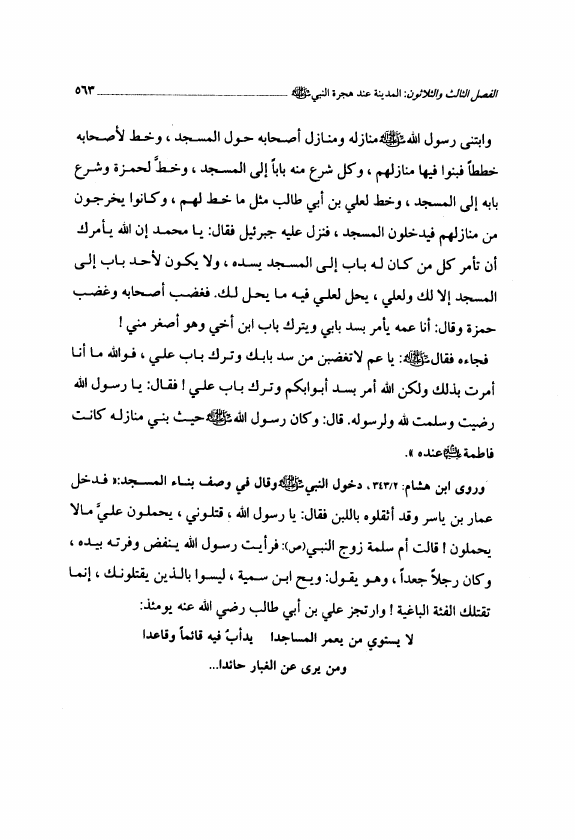 الفصل الثالث والثلاثون: المدينة عند هجرة النبي ﷺ ٥٦٣
وابتنى رسول الله ﷺ منازله ومنازل أصحابه حول المسجد ، وخط لأصحابه
خططاً فبنوا فيها منازلهم ، وكل شرع منه باباً إلى المسجد ، وخطَّ لحمزة وشرع
بابه إلى المسجد ، وخط لعلي بن أبي طالب مثل ما خط لهم ، وكانوا يخرجون
من منازلهم فيدخلون المسجد ، فنزل عليه جبرئيل فقال: يا محمد إن الله يأمرك
أن تأمر كل من كان له باب إلى المسجد يسده ، ولا يكون لأحد باب إلى
المسجد إلا لك ولعلي ، يحل لعلي فيه ما يحل لك. فغضب أصحابه وغضب
حمزة وقال: أنا عمه يأمر بسد بابي ويترك باب ابن أخي وهو أصغر مني !
فجاءه فقال ﷺ: يا عم لاتغضبن من سد بابك وترك باب علي ، فوالله ما أنا
أمرت بذلك ولكن الله أمر بسد أبوابكم وترك باب علي ! فقال: يا رسول الله
رضيت وسلمت لله ولرسوله. قال: وكان رسول الله ﷺ حيث بني منازله كانت
فاطمة عنده ».
وروى ابن هشام: ٣٤٣/٢، دخول النبي ﷺ وقال في وصف بناء المسجد:« فدخل
عمار بن ياسر وقد أثقلوه باللبن فقال: يا رسول الله ، قتلوني ، يحملون عليَّ مالا
يحملون ! قالت أم سلمة زوج النبي(ص): فرأيت رسول الله ينفض وفرته بيده ،
وكان رجلاً جعداً ، وهو يقول: ويح ابن سمية ، ليسوا بالذين يقتلونك ، إنما
تقتلك الفئة الباغية ! وارتجز علي بن أبي طالب رضي الله عنه يومئذ:
لا يستوي من يعمر المساجدا يدأبُ فيه قائماً وقاعدا
ومن يرى عن الغبار حائدا...